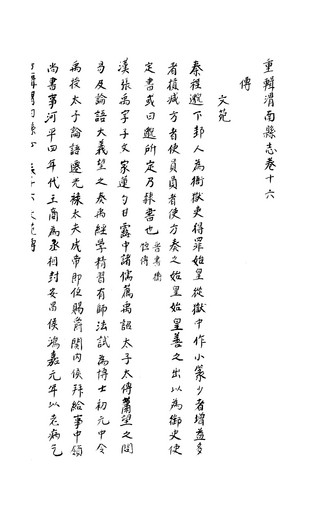 重輯渭南縣志卷十六
傳
文苑
秦程邈下邽人為衙獄吏得罪始皇從獄中作小篆少者增益多
者損減方者使員員者使方奏之始皇始皇善之出以為御史使
定書或曰邈所定乃隸書也晉書衛恒傳
漢張禹字子文家蓮勺甘露中諸儒薦禹詔太子太傅蕭望之問
易及論語大義望之奏禹經學精習有師法試為博士初元中令
禹授太子論語遷光祿大夫成帝即位賜爵關內侯拜給事中領
尚書事河平四年代王商為丞相封安昌侯鴻嘉元年以老病乞